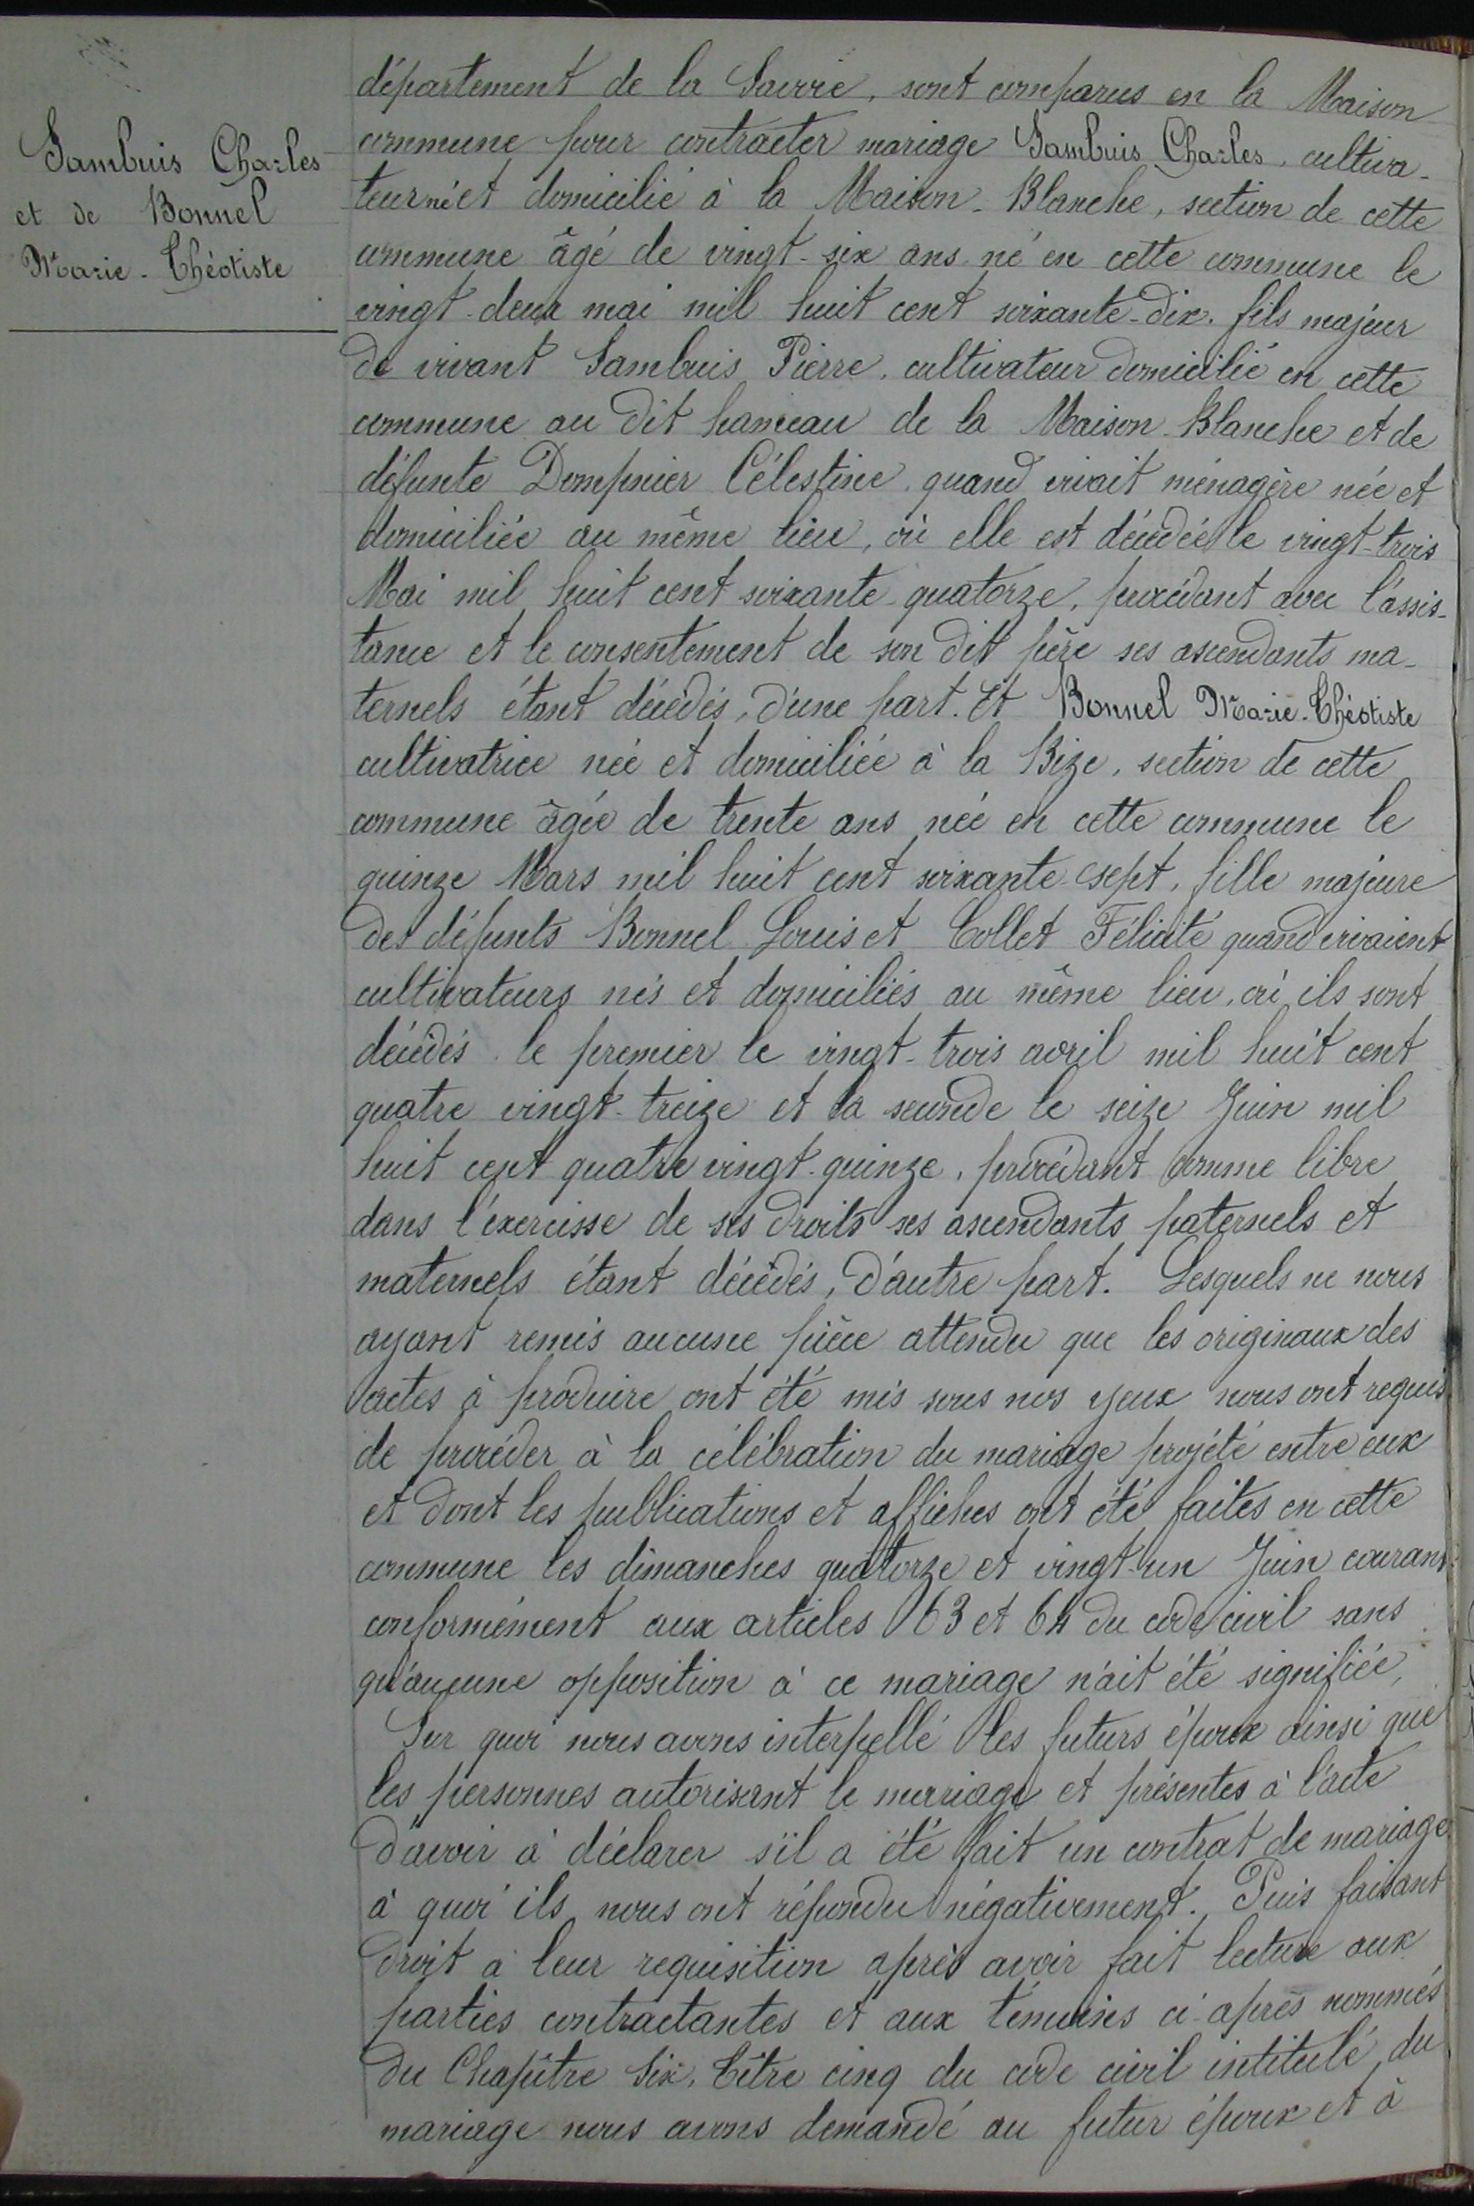 Sambuis Charles
et de Bonnel
Marie-Théotiste
département de la Savoie, sont comparus en la Maison
commune pour contracter mariage Sambuis Charles, cultiva-
teur né et domicilié à la Maison-Blanche, section de cette
commune âgé de vingt-six ans né en cette commune le
vingt-deux mai mil huit cent soixante-dix. fils majeur
de vivant Sambuis Pierre, cultivateur domicilié en cette
commune au dit hameau de la Maison-Blanche et de
défunte Dompnier Célestine quand vivait ménagère née et
domiciliée au même lieu, où elle est décédée le vingt-trois
Mai mil huit cent soixante-quatorze, procédant avec l'assis-
tance et le consentement de son dit père ses ascendants ma-
ternels étant décédés, d'une part. Et Bonnel Marie-Théotiste
cultivatrice née et domiciliée à la Bize, section de cette
commune âgée de trente ans née en cette commune le
quinze Mars mil huit cent soixante-sept, fille majeure
des défunts Bonnel Louis et Collet Félicité quand vivaient
cultivateurs nés et domiciliés au même lieu, où ils sont
décédés le premier le vingt-trois avril mil huit cent
quatre vingt-treize et la seconde le seize Juin mil
huit cent quatre vingt-quinze, procédant comme libre
dans l'exercisse de ses droits ses ascendants paternels et
maternels étant décédés, d'autre part. Lesquels ne nous
ayant remis aucune pièce attendu que les originaux des
actes à produire ont été mis sous nos yeux nous ont requis
de procéder à la célébration du mariage projété entre eux
et dont les publications et affiches ont été faites en cette
commune les dimanches quatorze et vingt-un Juin courant
conformément aux articles 63 et 64 du code civil sans
qu'aucune opposition à ce mariage n'ait été signifiée,
Sur quoi nous avons interpellé les futurs époux ainsi que
les personnes autorisant le mariage et présentes à l'acte
d'avoir à déclarer s'il a été fait un contrat de mariage
à quoi ils nous ont répondu négativement. Puis faisant
droit à leur requisition après avoir fait lecture aux
parties contractantes et aux témoins ci-après nommés
du Chapître Six, Titre cinq du code civil intitulé du
mariage nous avons demandé au futur époux et à